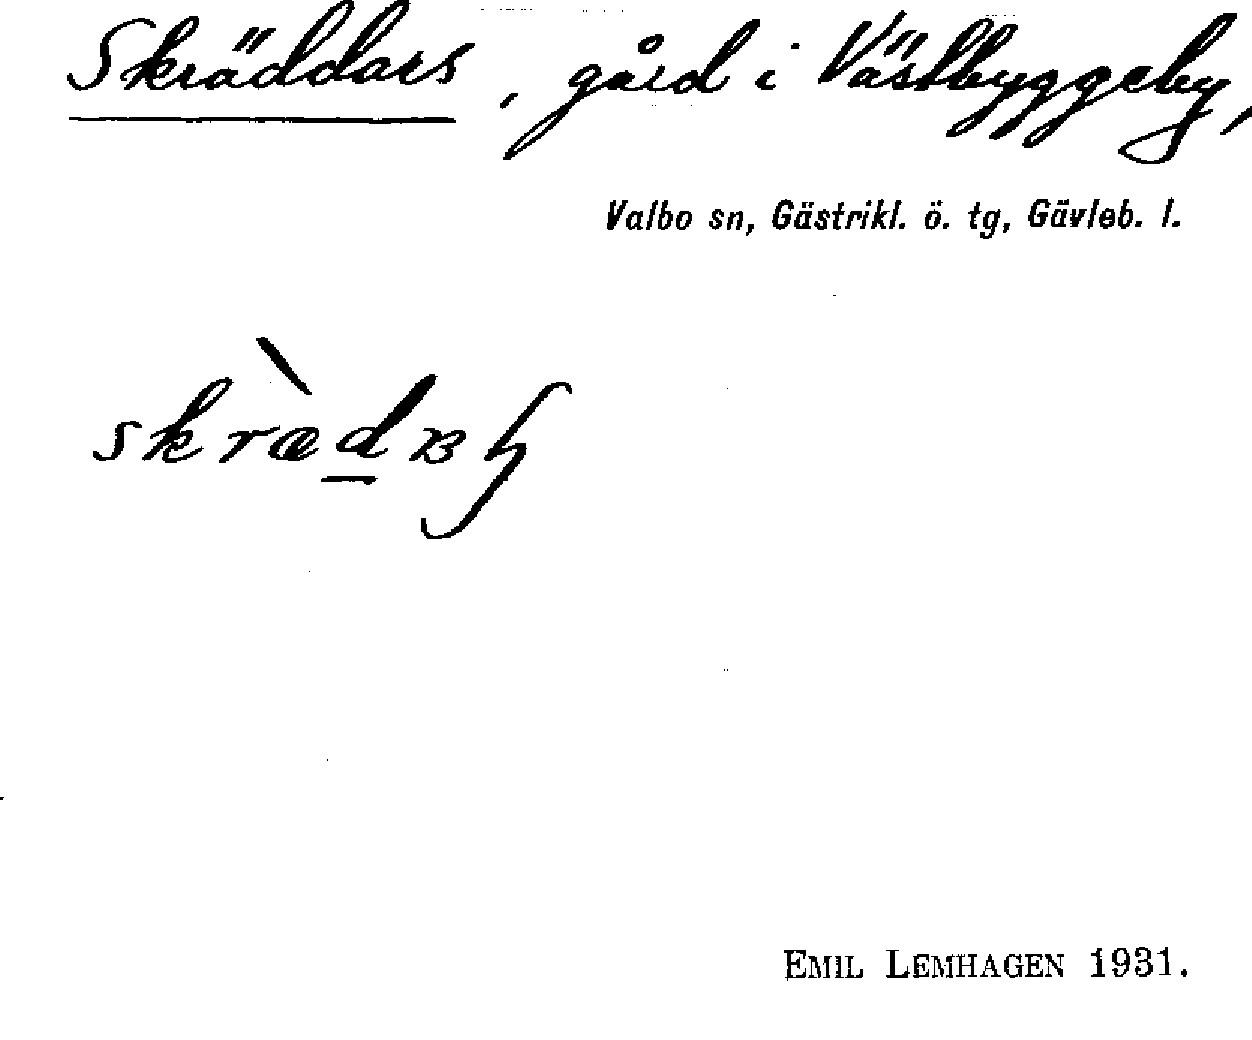 Skräddars, gård i Västbyggeby,
Valbo sn, Gästrikl. ö. tg, Gävleb. l.
EMIL LEMHAGEN 1931.